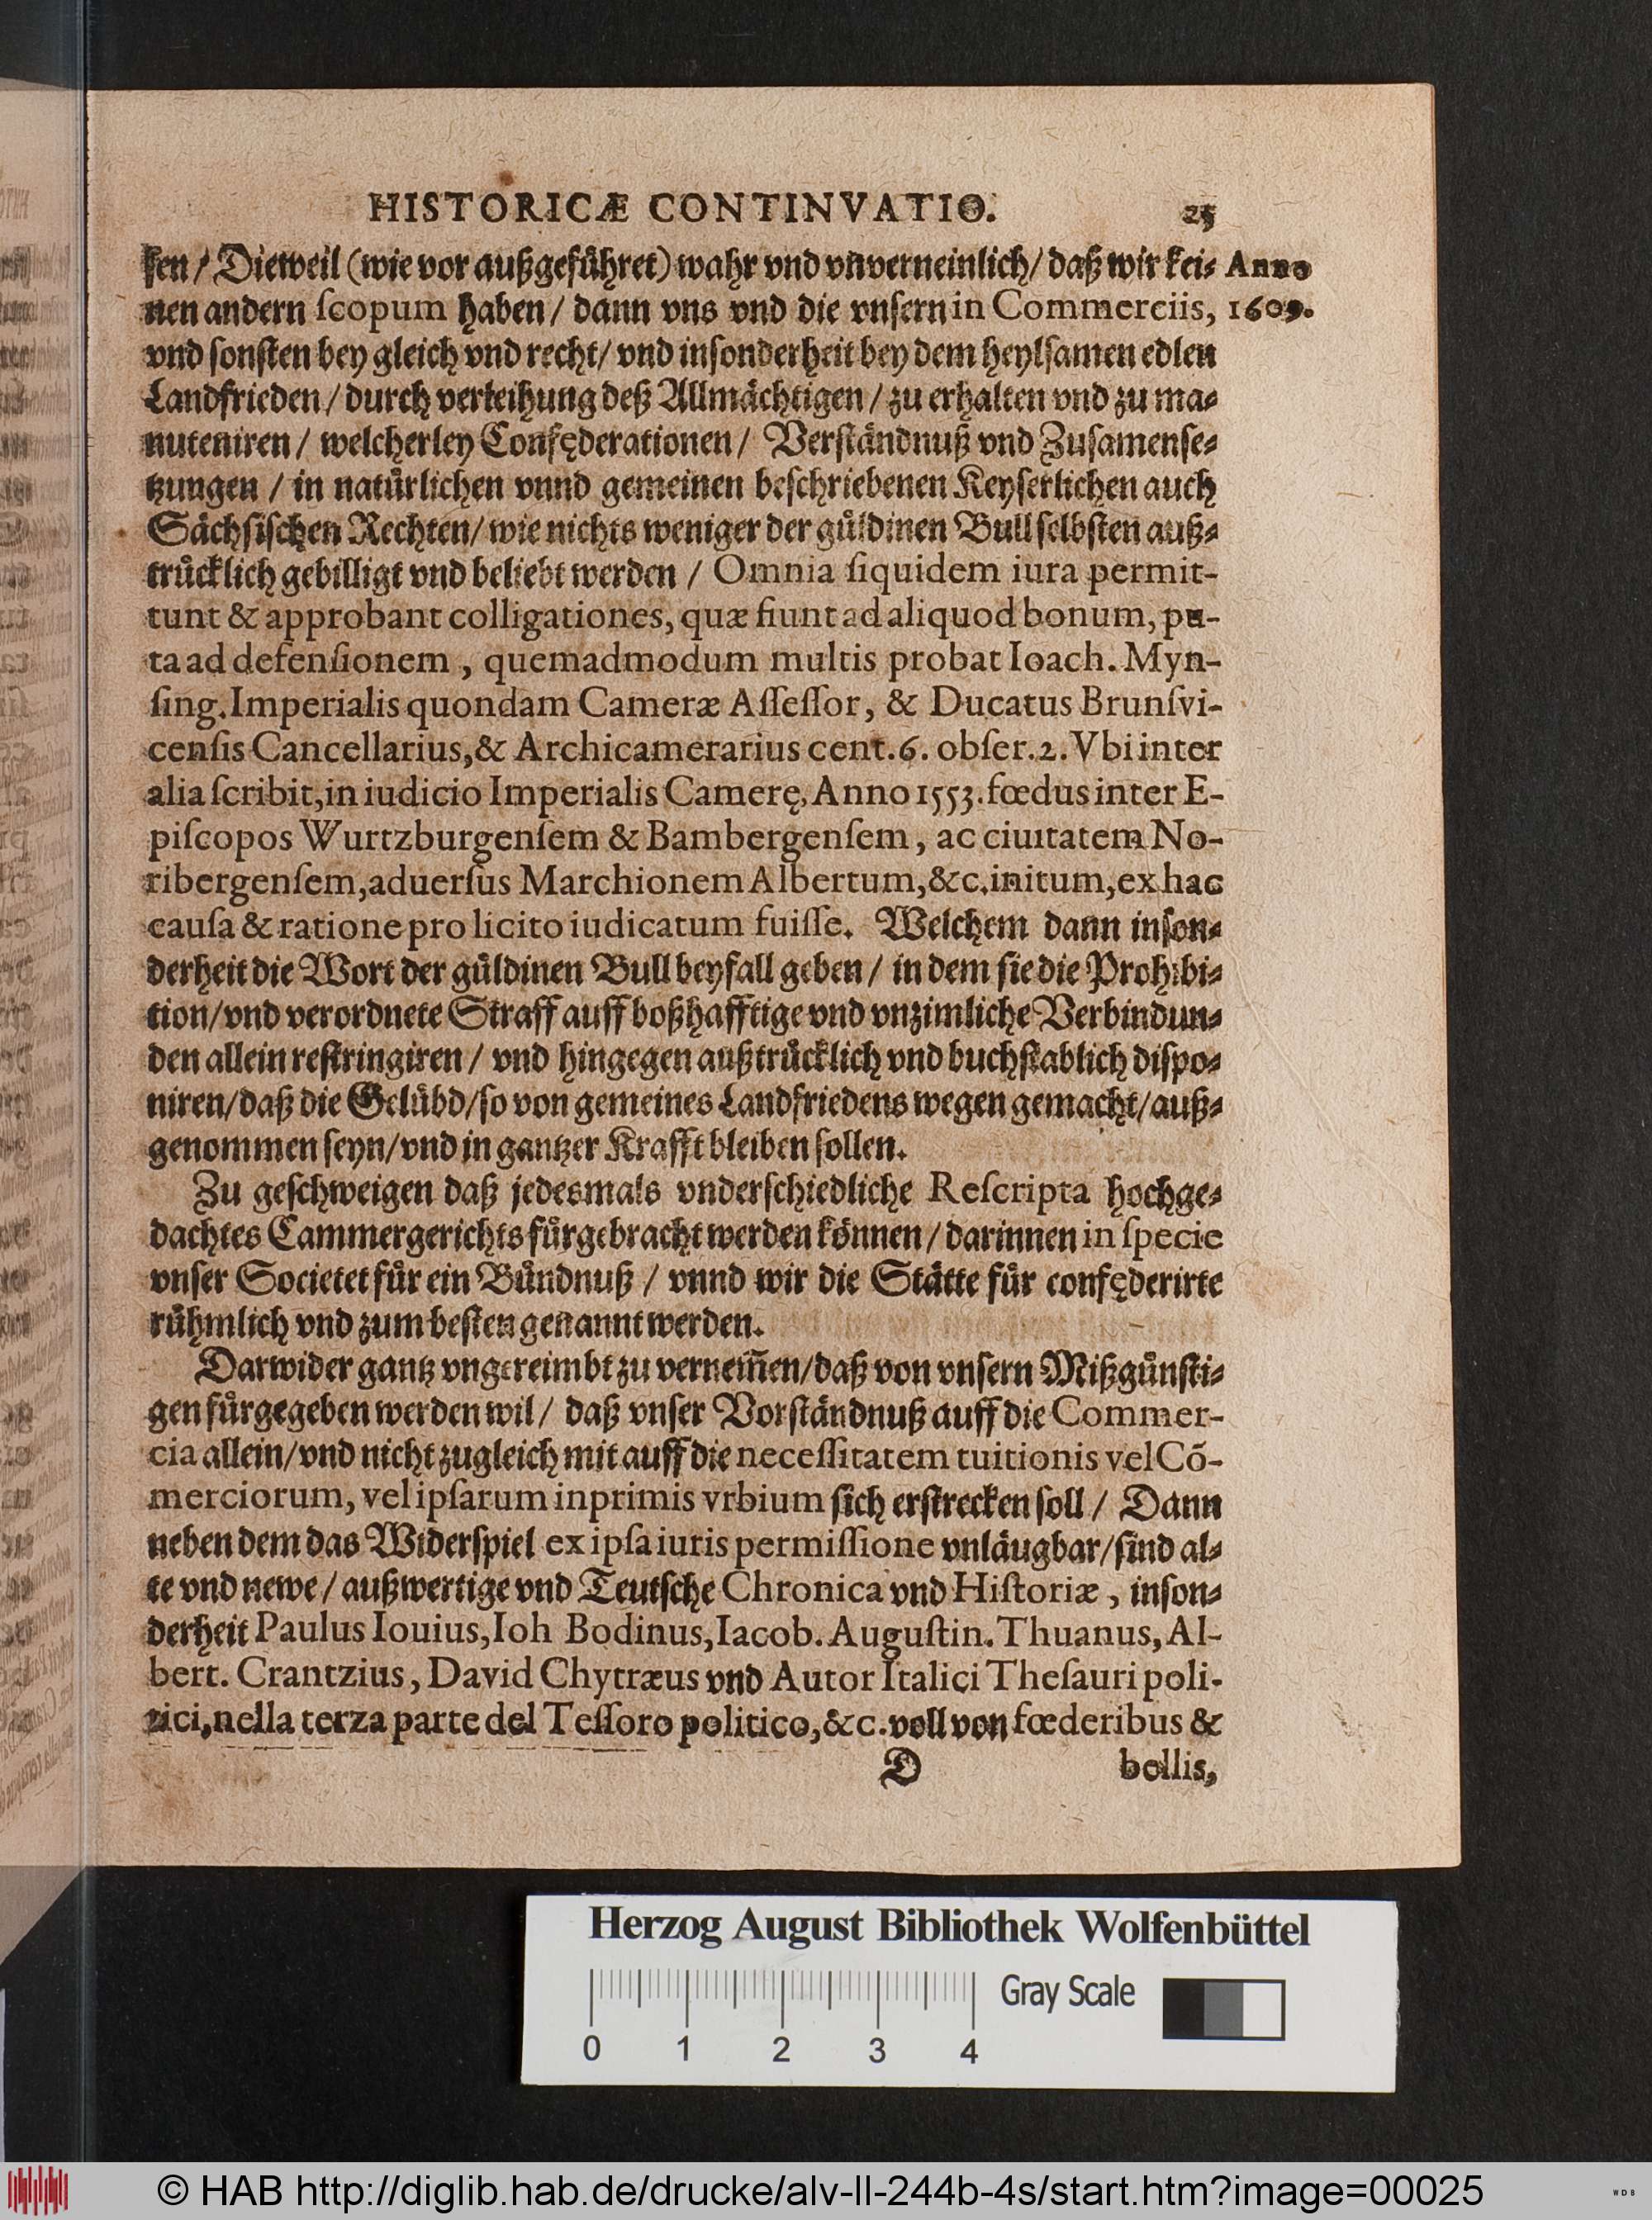 HISTORICÆ CONTINVATIO. 25
ken / Dieweil (wie vor außgefuͤhret) wahr vnd vnverneinlich / daß wir kei⸗ Anno
nen andern ſcopum haben / dann vns vnd die vnſern in Commerciis, 1609.
vnd ſonſten bey gleich vnd recht / vnd inſonderheit bey dem heylſamen edlen
Landfrieden / durch verleihung deß Allmaͤchtigen / zu erhalten vnd zu ma⸗
nuteniren / welcherley Confęderationen / Verſtaͤndnuß vnd Zuſamenſe⸗
tzungen / in natuͤrlichen vnnd gemeinen beſchriebenen Keyſerlichen auch
Saͤchſiſchen Rechten / wie nichts weniger der guͤldinen Bull ſelbſten auß⸗
truͤcklich gebilligt vnd beliebt werden / Omnia ſiquidem iura permit-
tunt & approbant colligationes, quæ fiunt ad aliquod bonum, pu-
ta ad defenſionem , quemadmodum multis probat Ioach. Myn-
ſing. Imperialis quondam Cameræ Aſſeſſor, & Ducatus Brunſvi-
cenſis Cancellarius, & Archicamerarius cent. 6. obſer. 2. Vbi inter
alia ſcribit, in iudicio Imperialis Camerę, Anno 1553. fœdus inter E-
piſcopos Wurtzburgenſem & Bambergenſem, ac ciuitatem No-
ribergenſem, aduerſus Marchionem Albertum, &c. initum, ex hac
cauſa & ratione pro licito iudicatum fuiſſe. Welchem dann inſon⸗
derheit die Wort der guͤldinen Bull beyfall geben / in dem ſie die Prohibi⸗
tion / vnd verordnete Straff auff boßhafftige vnd vnzimliche Verbindun⸗
den allein reſtringiren / vnd hingegen außtruͤcklich vnd buchſtablich diſpo⸗
niren / daß die Geluͤbd / ſo von gemeines Landfriedens wegen gemacht / auß⸗
genommen ſeyn / vnd in gantzer Krafft bleiben ſollen.
Zu geſchweigen daß jedesmals vnderſchiedliche Reſcripta hochge⸗
dachtes Cammergerichts fuͤrgebracht werden koͤnnen / darinnen in ſpecie
vnſer Societet fuͤr ein Buͤndnuß / vnnd wir die Staͤtte fuͤr confęderirte
ruͤhmlich vnd zum beſten genannt werden.
Darwider gantz vngereimbt zu vernem̃en / daß von vnſern Mißguͤnſti⸗
gen fuͤrgegeben werden wil / daß vnſer Vorſtaͤndnuß auff die Commer-
cia allein / vnd nicht zugleich mit auff die neceſſitatem tuitionis vel Cõ-
merciorum, vel ipſarum inprimis vrbium ſich erſtrecken ſoll / Dann
neben dem das Widerſpiel ex ipſa iuris permiſſione vnlaͤugbar / ſind al⸗
te vnd newe / außwertige vnd Teutſche Chronica vnd Hiſtoriæ , inſon⸗
derheit Paulus Iouius, Ioh Bodinus, Iacob. Auguſtin. Thuanus, Al-
bert. Crantzius, David Chytræus vnd Autor Italici Theſauri poli-
tici, nella terza parte del Teſſoro politico, &c. voll von fœderibus &
D bellis,
Herzog August Bibliothek Wolfenbüttel
Gray Scale
0 1 2 3 4
© HAB http://diglib.hab.de/drucke/alv-ll-244b-4s/start.htm?image=00025
WDB